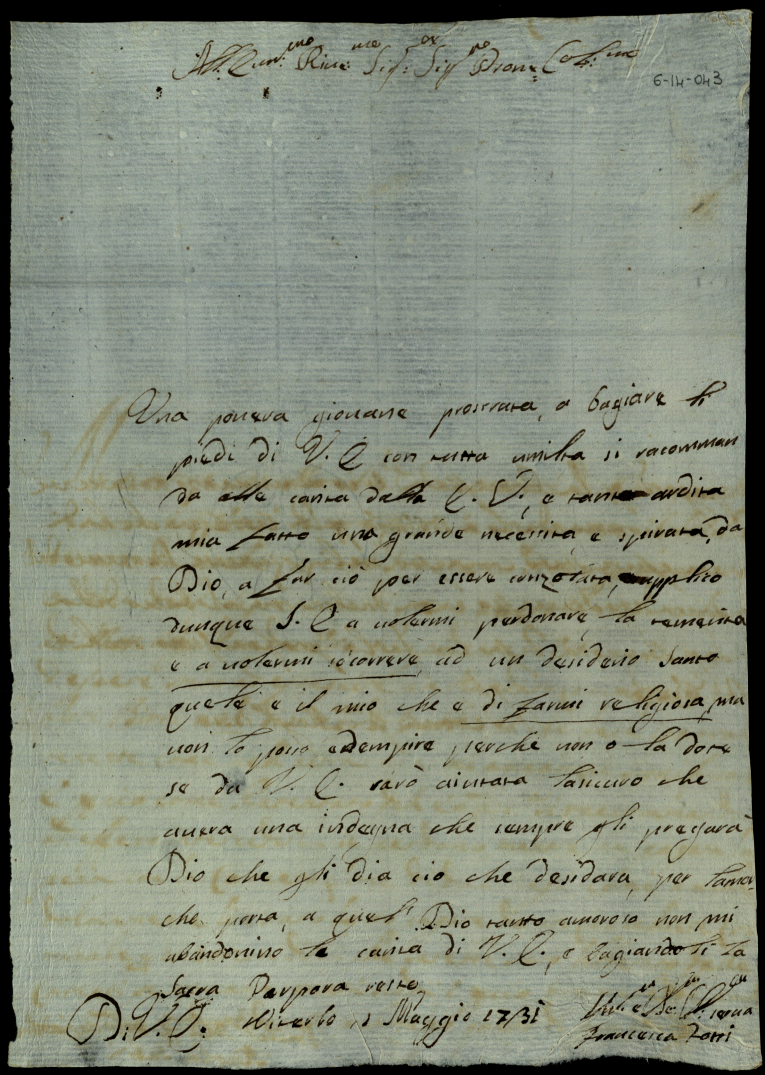 Em.mo Rine: mo Sig: or Sig. re Prone Col:mo
6-14-043
Una povera giovane prostrata, a bagiare li
piedi di V. E con tutta umilta si racoman
da alla carita della E. V., e tanto ardita
mia fatto una grande necesita, e spirata, da
Dio, a far ciò per essere conzolata, supplico
dunque S. E a volermi perdonare, la temerita
e a volermi socorrere, ad un desiderio santo
quele e il mio che e di farmi religiosa, ma
non lo poso adempire perche non o la dote
se da V. E. sarò aiutata lasicuro che
avera una indegna che sempre gli pregarà
Dio che gli dia cio che desidara, per lamor
che porta, a quel Dio tanto amoroso non mi
abandonino la carita di V. E., e bagiandoli la
Sacra Porpora resto
Di V. E. Viterbo, 1 Maggio 1731
serva
Francesca Zorri